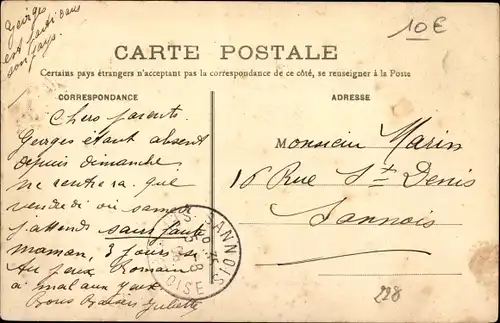 Georges
est parti dans
son pays.
10€
CARTE POSTALE
Certains pays étrangers n'acceptant pas la correspondance de ce côté, se renseigner à la Poste
CORRESPONDANCE
ADRESSE
Chers parents.
Georges étant absent
depuis dimanche
ne rentrera que
vendredi ou samedi
j'attends sans faute
maman, 3 jours
Au Romain
a mal aux yeux
Bons Baisers Juliette
Monsieur Marin
16 Rue St Denis
Sannois
SANNOIS
OISE
228